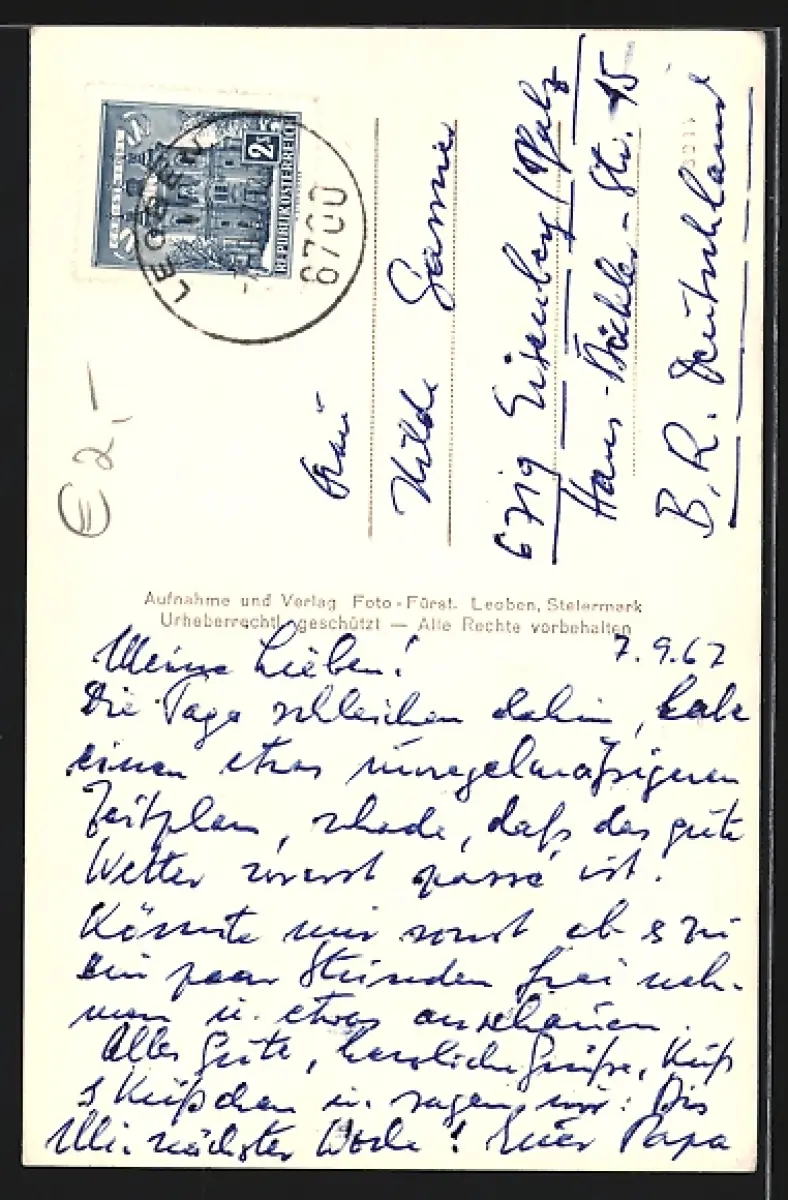 REPUBLIK ÖSTERREICH
2
LEOBEN
6700
€ 2,-
Frau
Hilde
6719 Eisenberg / Pfalz
Hans - - Str. 15
B.R. Deutschland
Aufnahme und Verlag Foto-Fürst. Leoben, Steiermark
Urheberrechtl. geschützt — Alle Rechte vorbehalten
7.9.67
Meine Lieben!
Die Tage schleichen dahin, habe
einen etwas unregelmäßigeren
Zeitplan, schade, daß das gute
Wetter vorerst passé ist.
Könnte mir sonst ab u. zu
ein paar Stunden frei neh-
men u. etwas anschauen.
Alles Gute, herzliche Grüße, Kuß
& Küßchen u. sagen wir: Bis
Mi. nächster Woche! Euer Papa